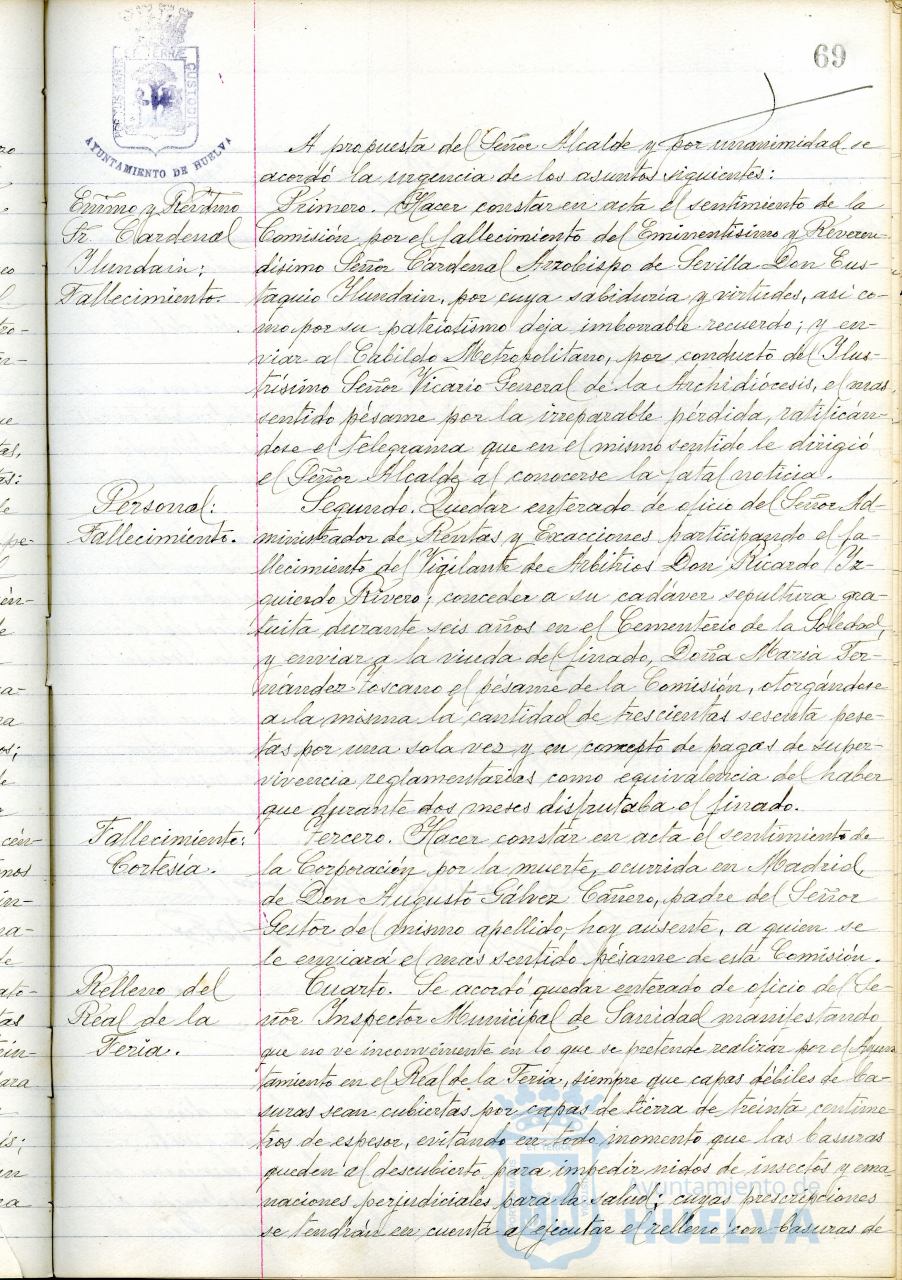 69
PORTUS MARIS
ET TERRAE
CUSTODIA
AYUNTAMIENTO DE HUELVA
A propuesta del Señor Alcalde y por unanimidad se
acordó la urgencia de los asuntos siguientes:
Emmo y Revdmo
Sr. Cardenal
Ilundain:
Fallecimiento.
Primero. Hacer constar en acta el sentimiento de la
Comisión por el fallecimiento del Eminentísimo y Reveren-
dísimo Señor Cardenal Arzobispo de Sevilla Don Eus-
taquio Ilundain, por cuya sabiduría y virtudes, así co-
mo por su pateiotismo deja imborrable recuerdo; y en-
viar al Cabildo Metropolitano, por conducto del Ilus-
trísimo Señor Vicario General de la Archidiócesis, el mas
sentido pésame por la irreparable pérdida, ratificán-
dose el telegrama que en el mismo sentido le dirigió
el Señor Alcalde al conocerse la fatal noticia.
Personal:
Fallecimiento.
Segundo. Quedar enterado de oficio del Señor Ad-
ministrador de Rentas y Exacciones participando el fa-
llecimiento del Vigilante de Arbitrios Don Ricardo Iz-
quierdo Rivero; conceder a su cadáver sepultura gra-
tuita durante seis años en el Cementerio de la Soledad,
y enviar a la viuda del finado, Doña María Fer-
nández Toscano el pésame de la Comisión, otorgándose
a la misma la cantidad de trescientas sesenta pese-
tas por una sola vez y en concepto de pagas de super-
vivencia reglamentarias como equivalencia del haber
que durante dos meses disfrutaba el finado.
Fallecimiento:
Cortesía.
Tercero. Hacer constar en acta el sentimiento de
la Corporación por la muerte, ocurrida en Madrid,
de Don Augusto Gálvez Cañero, padre del Señor
Gestor del mismo apellido, hoy ausente, a quien se
le enviará el mas sentido pésame de esta Comisión.
Relleno del
Real de la
Feria.
Cuarto. Se acordó quedar enterado de oficio del Se-
ñor Inspector Municipal de Sanidad manifestando
que no ve inconveniente en lo que se pretende realizar por el Ayun
tamiento en el Real de la Feria, siempre que capas débiles de ba-
suras sean cubiertas por capas de tierra de treinta centíme-
tros de espesor, evitando en todo momento que las basuras
queden al descubierto para impedir nidos de insectos y ema-
naciones perjudiciales para la salud; cuyas prescripciones
se tendrán en cuenta al ejecutar el relleno con basuras de
Ayuntamiento de
HUELVA